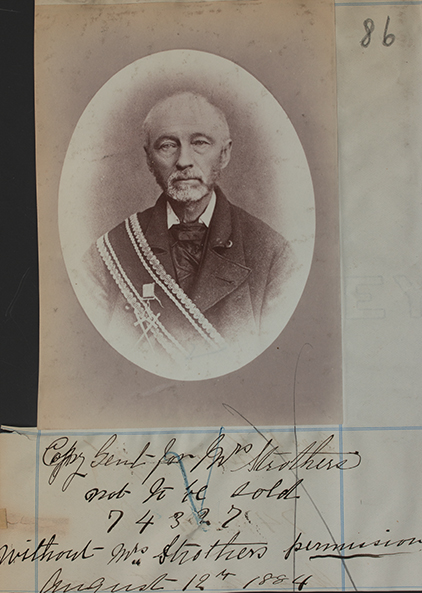 86
Copy Gent for Mrs Strothers
not to be sold
74327
without Mrs Strothers permission
August 12th 1884